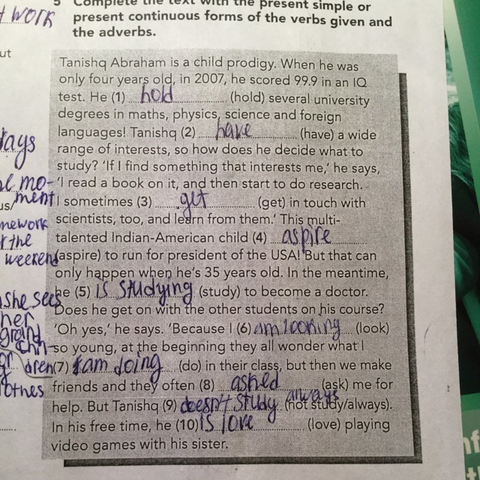 5 Complete the text with the present simple or
present continuous forms of the verbs given and
the adverbs.
Tanishq Abraham is a child prodigy. When he was
only four years old, in 2007, he scored 99.9 in an IQ
test. He (1) hold (hold) several university
degrees in maths, physics, science and foreign
languages! Tanishq (2) have (have) a wide
range of interests, so how does he decide what to
study? 'If I find something that interests me,' he says,
'I read a book on it, and then start to do research.
I sometimes (3) get (get) in touch with
scientists, too, and learn from them.' This multi-
talented Indian-American child (4) aspire
(aspire) to run for president of the USA! But that can
only happen when he's 35 years old. In the meantime,
he (5) is studying (study) to become a doctor.
Does he get on with the other students on his course?
'Oh yes,' he says. 'Because I (6) am looking (look)
so young, at the beginning they all wonder what I
(7) am doing (do) in their class, but then we make
friends and they often (8) asked (ask) me for
help. But Tanishq (9) doesn't study always (not study/always).
In his free time, he (10) is love (love) playing
video games with his sister.
work
out
days
mo-
ment
mework
the
weekend
she sees
her
grand
chil-
dren